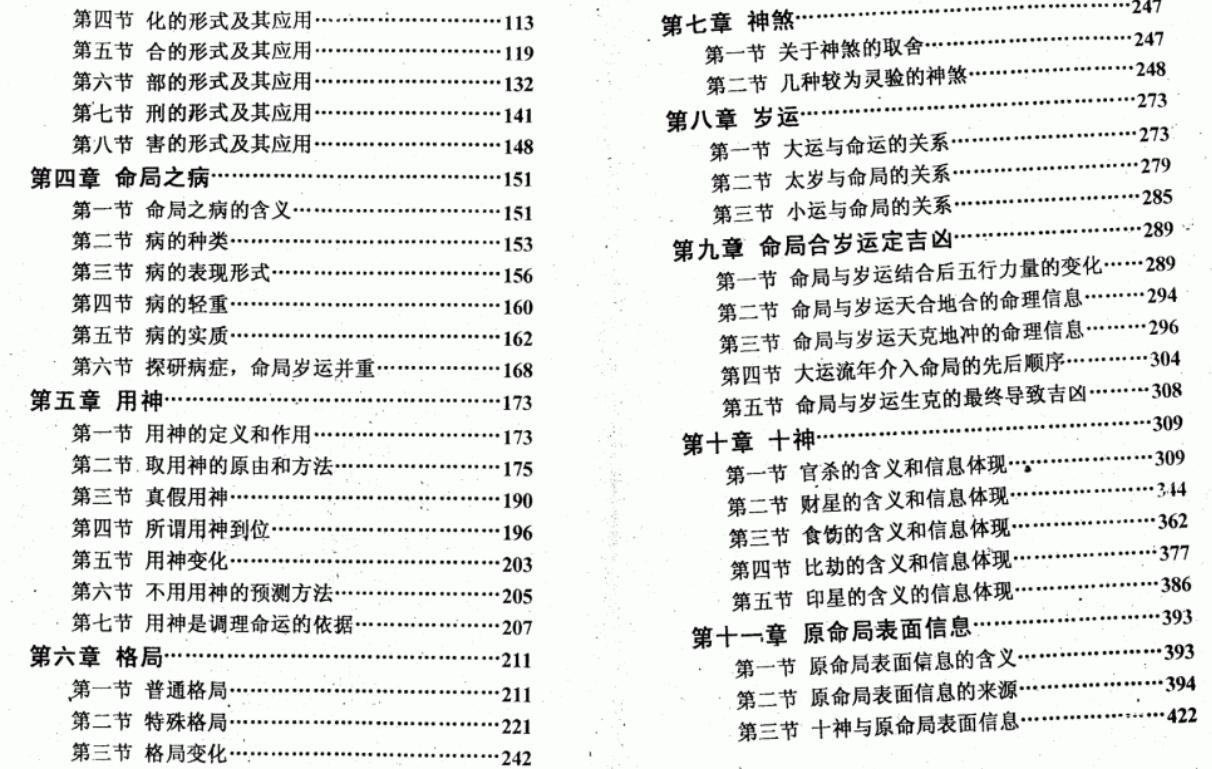 第四节 化的形式及其应用………113
第五节 合的形式及其应用………119
第六节 部的形式及其应用………132
第七节 刑的形式及其应用………141
第八节 害的形式及其应用………148
第四章 命局之病………151
第一节 命局之病的含义………151
第二节 病的种类………153
第三节 病的表现形式………156
第四节 病的轻重………160
第五节 病的实质………162
第六节 探研病症，命局岁运并重………168
第五章 用神………173
第一节 用神的定义和作用………173
第二节 取用神的原由和方法………175
第三节 真假用神………190
第四节 所谓用神到位………196
第五节 用神变化………203
第六节 不用用神的预测方法………205
第七节 用神是调理命运的依据………207
第六章 格局………211
第一节 普通格局………211
第二节 特殊格局………221
第三节 格局变化………242
第七章 神煞………247
第一节 关于神煞的取舍………247
第二节 几种较为灵验的神煞………248
第八章 岁运………273
第一节 大运与命运的关系………273
第二节 太岁与命局的关系………279
第三节 小运与命局的关系………285
第九章 命局合岁运定吉凶………289
第一节 命局与岁运结合后五行力量的变化……289
第二节 命局与岁运天合地合的命理信息………294
第三节 命局与岁运天克地冲的命理信息………296
第四节 大运流年介入命局的先后顺序………304
第五节 命局与岁运生克的最终导致吉凶………308
第十章 十神………309
第一节 官杀的含义和信息体现………309
第二节 财星的含义和信息体现………344
第三节 食伤的含义和信息体现………362
第四节 比劫的含义和信息体现………377
第五节 印星的含义的信息体现………386
第十一章 原命局表面信息………393
第一节 原命局表面信息的含义………393
第二节 原命局表面信息的来源………394
第三节 十神与原命局表面信息………422